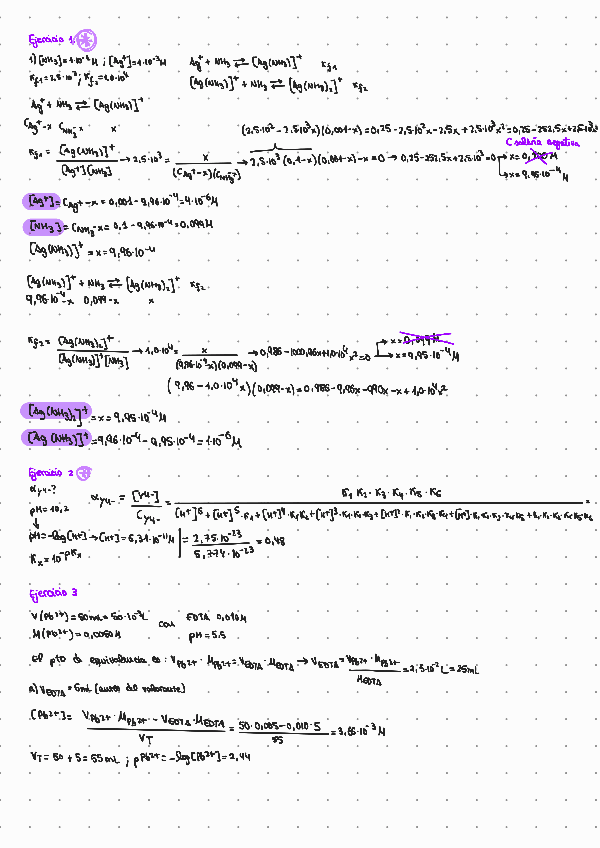 Ejercicio 1
1) [NH3]=1·10⁻¹M ; [Ag⁺]=1·10⁻³M   Ag⁺ + NH3 ⇄ [Ag(NH3)]⁺   Kf1
Kf1=2,5·10³ ; Kf2=1,0·10⁴   [Ag(NH3)]⁺ + NH3 ⇄ [Ag(NH3)2]⁺   Kf2
Ag⁺ + NH3 ⇄ [Ag(NH3)]⁺
CAg⁺-x   CNH3-x   x
(2,5·10² - 2,5·10³x)(0,001-x) = 0,25 - 2,5·10²x - 2,5x + 2,5·10³x² = 0,25 - 252,5x + 2,5·10³x²
C saldría negativa
Kf1 = [Ag(NH3)]⁺ / [Ag⁺][NH3] → 2,5·10³ = x / (CAg⁺-x)(CNH3-x) → 2,5·10³ (0,1-x)(0,001-x) - x = 0 → 0,25 - 252,5x + 2,5·10³ = 0 → x = M
→ x = 9,95·10⁻⁴ M
[Ag⁺] = CAg⁺ - x = 0,001 - 9,96·10⁻⁴ = 4·10⁻⁶M
[NH3] = CNH3 - x = 0,1 - 9,96·10⁻⁴ = 0,099M
[Ag(NH3)]⁺ = x = 9,96·10⁻⁴
[Ag(NH3)]⁺ + NH3 ⇄ [Ag(NH3)2]⁺   Kf2
9,96·10⁻⁴-x   0,099-x   x
Kf2 = [Ag(NH3)2]⁺ / [Ag(NH3)]⁺[NH3] → 1,0·10⁴ = x / (9,96·10⁻⁴-x)(0,099-x) → 0,986 - 1000,96x + 1,0·10⁴x² = 0 → x = 0,099M
→ x = 9,95·10⁻⁴M
(9,96 - 1,0·10⁴x)(0,099-x) = 0,986 - 9,96x - 990x - x + 1,0·10⁴x²
[Ag(NH3)2]⁺ = x = 9,95·10⁻⁴M
[Ag(NH3)]⁺ = 9,96·10⁻⁴ - 9,95·10⁻⁴ = 1·10⁻⁶M
Ejercicio 2
αY4-?
αY4- = [Y4-] / CY4- = K1·K2·K3·K4·K5·K6 / [H⁺]⁶+[H⁺]⁵·K1+[H⁺]⁴·K1K2+[H⁺]³·K1·K2·K3+[H⁺]²·K1·K2·K3·K4+[H⁺]·K1·K2·K3·K4·K5+K1·K2·K3·K4·K5·K6 =
pH=10,2
pH=-log[H⁺] → [H⁺] = 6,31·10⁻¹¹M   = 2,75·10⁻²³ / 5,774·10⁻²³ = 0,48
Kx = 10⁻ᵖᴷˣ
Ejercicio 3
V(Pb²⁺) = 50mL = 50·10⁻³L   con   EDTA 0,010M
M(Pb²⁺) = 0,0050M   pH=5.5
El pto de equivalencia es: VPb²⁺ · MPb²⁺ = VEDTA · MEDTA → VEDTA = VPb²⁺ · MPb²⁺ / MEDTA = 2,5·10⁻²L = 25mL
a) VEDTA = 5mL (antes del valorante)
[Pb²⁺] = VPb²⁺ · MPb²⁺ - VEDTA · MEDTA / VT = 50·0,005 - 0,010·5 / 55 = 3,65·10⁻³M
VT = 50 + 5 = 55 mL ; pPb²⁺ = -log[Pb²⁺] = 2,44